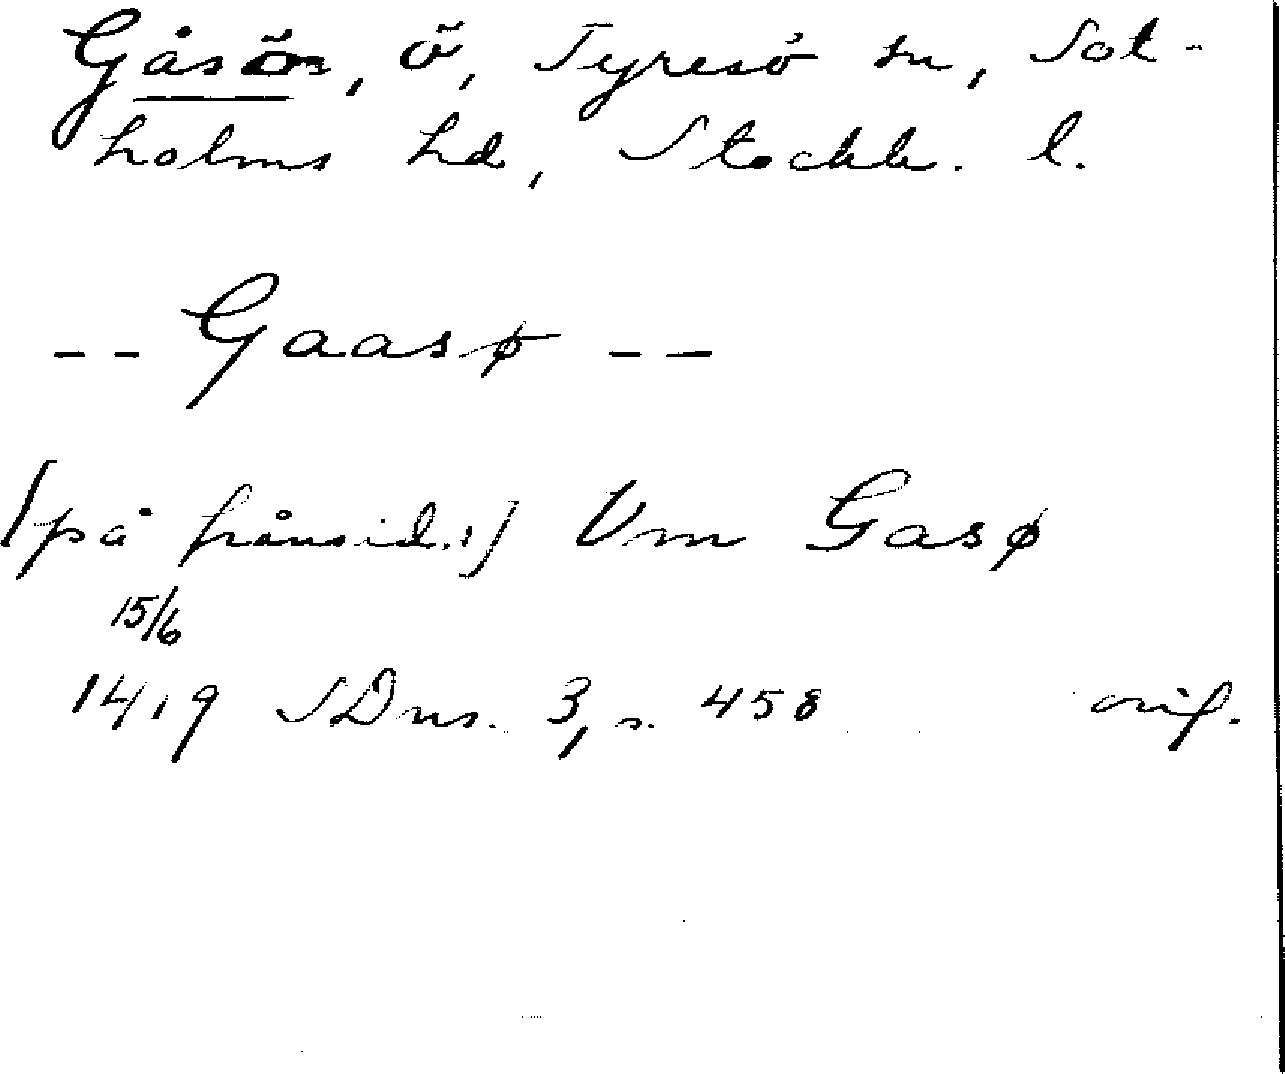 Gåsö, ö, Tyresö sn, Sot-
holms hd, Stockh. l.
-- Gaasø --
[på frånsid.:] Vm Gasø
15/6
1419 SDns. 3, s. 458 orig.